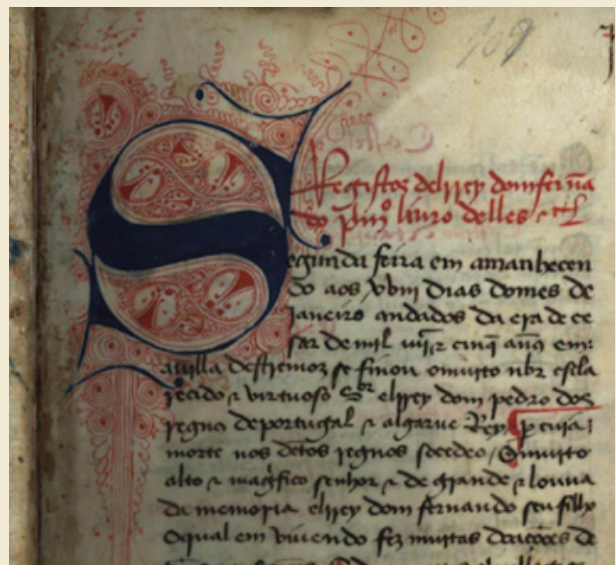 109
Registos delrrey dom ferna
do pimro liuro delles
Segunda feira em amanhecen
do aos xbiii dias do mes de
janeiro andados da era de ce
sar de mil iiijc cinq anos em
a uilla destremoz se finou o muito nbr escla
recido e virtuoso Sor elrrey dom pedro dos
regnos de portugal e algarue Rey p cuja
morte nos detos regnos socedeo / O muyto
alto e magfico senhor e de grande e louua
da memoria elrrey dom fernando seu filho
O qual em viuendo fez muitas doações de